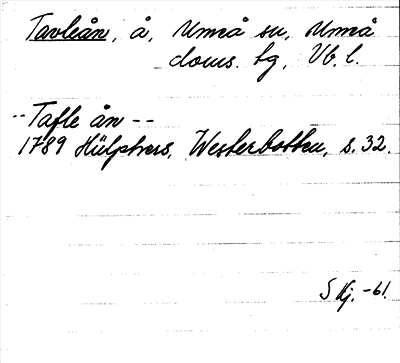 Tavleån, å, Umeå sn, Umeå
doms. tg, Vb. l.
--Tafle ån--
1789 Hülphers, Westerbotten, s. 32.
S Kj. -61.